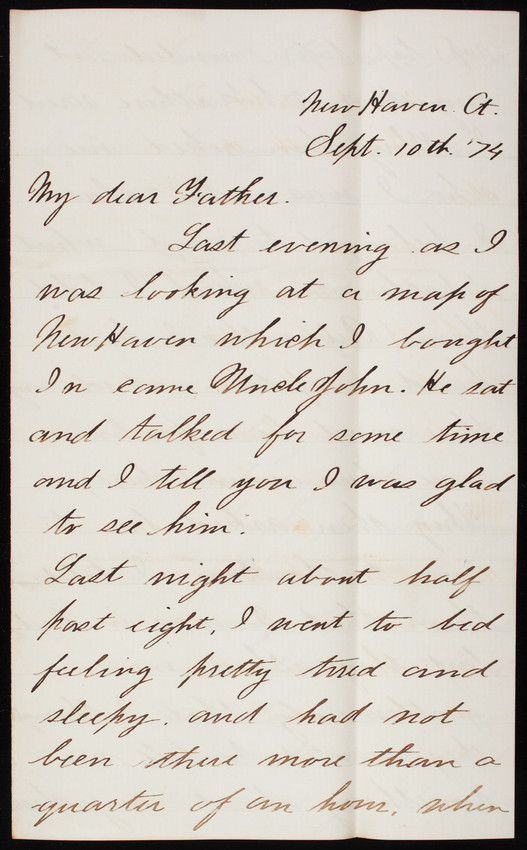 New Haven Ct.
Sept. 10th '74
My dear Father.
Last evening as I
was looking at a map of
New Haven which I bought
In came Uncle John. He sat
and talked for some time
and I tell you I was glad
to see him.
Last night about half
past eight, I went to bed
feeling pretty tired and
sleepy. and had not
been there more than a
quarter of an hour, when